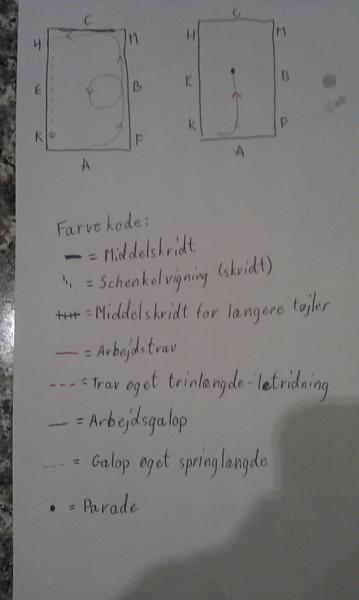 C
H M
E B
K F
A
C
H M
E B
K P
A
Farvekode:
= Middelskridt
= Schenkelvigning (skridt)
= Middelskridt for længere tøjler
= Arbejdstrav
= Trav øget trinlængde - letridning
= Arbejdsgalop
= Galop øget springlængde
= Parade